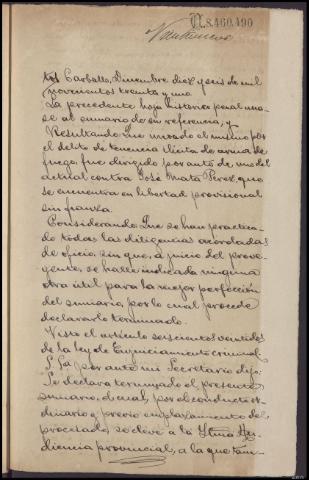 A.8.460.490
Carballo, Diciembre diez y seis de mil
novecientos treinta y uno
La precedente hoja historico penal una-
se al sumario de su referencia, y
Resultando Que incoado el mismo por
el delito de tenencia ilicita de arma de
fuego fue dirigido por auto de uno del
actual contra José Mato Pérez que
se encuentra en libertad provisional
sin fianza.
Considerando Que se han practica-
do todas las diligencias acordadas
de oficio, sin que, a juicio del prove-
yente, se halle indicada ninguna
otra util para la mejor perfección
del sumario, por lo cual procede
declararlo terminado.
Visto el articulo seiscientos veintidos
de la ley de Enjuiciamiento criminal
S. Sª por ante mi Secretario dijo:
Se declara terminado el presente
sumario, el cual, por el conducto or-
dinario y previo emplazamiento del
procesado, se eleve a la Iltma Au-
diencia provincial, a la que tam-